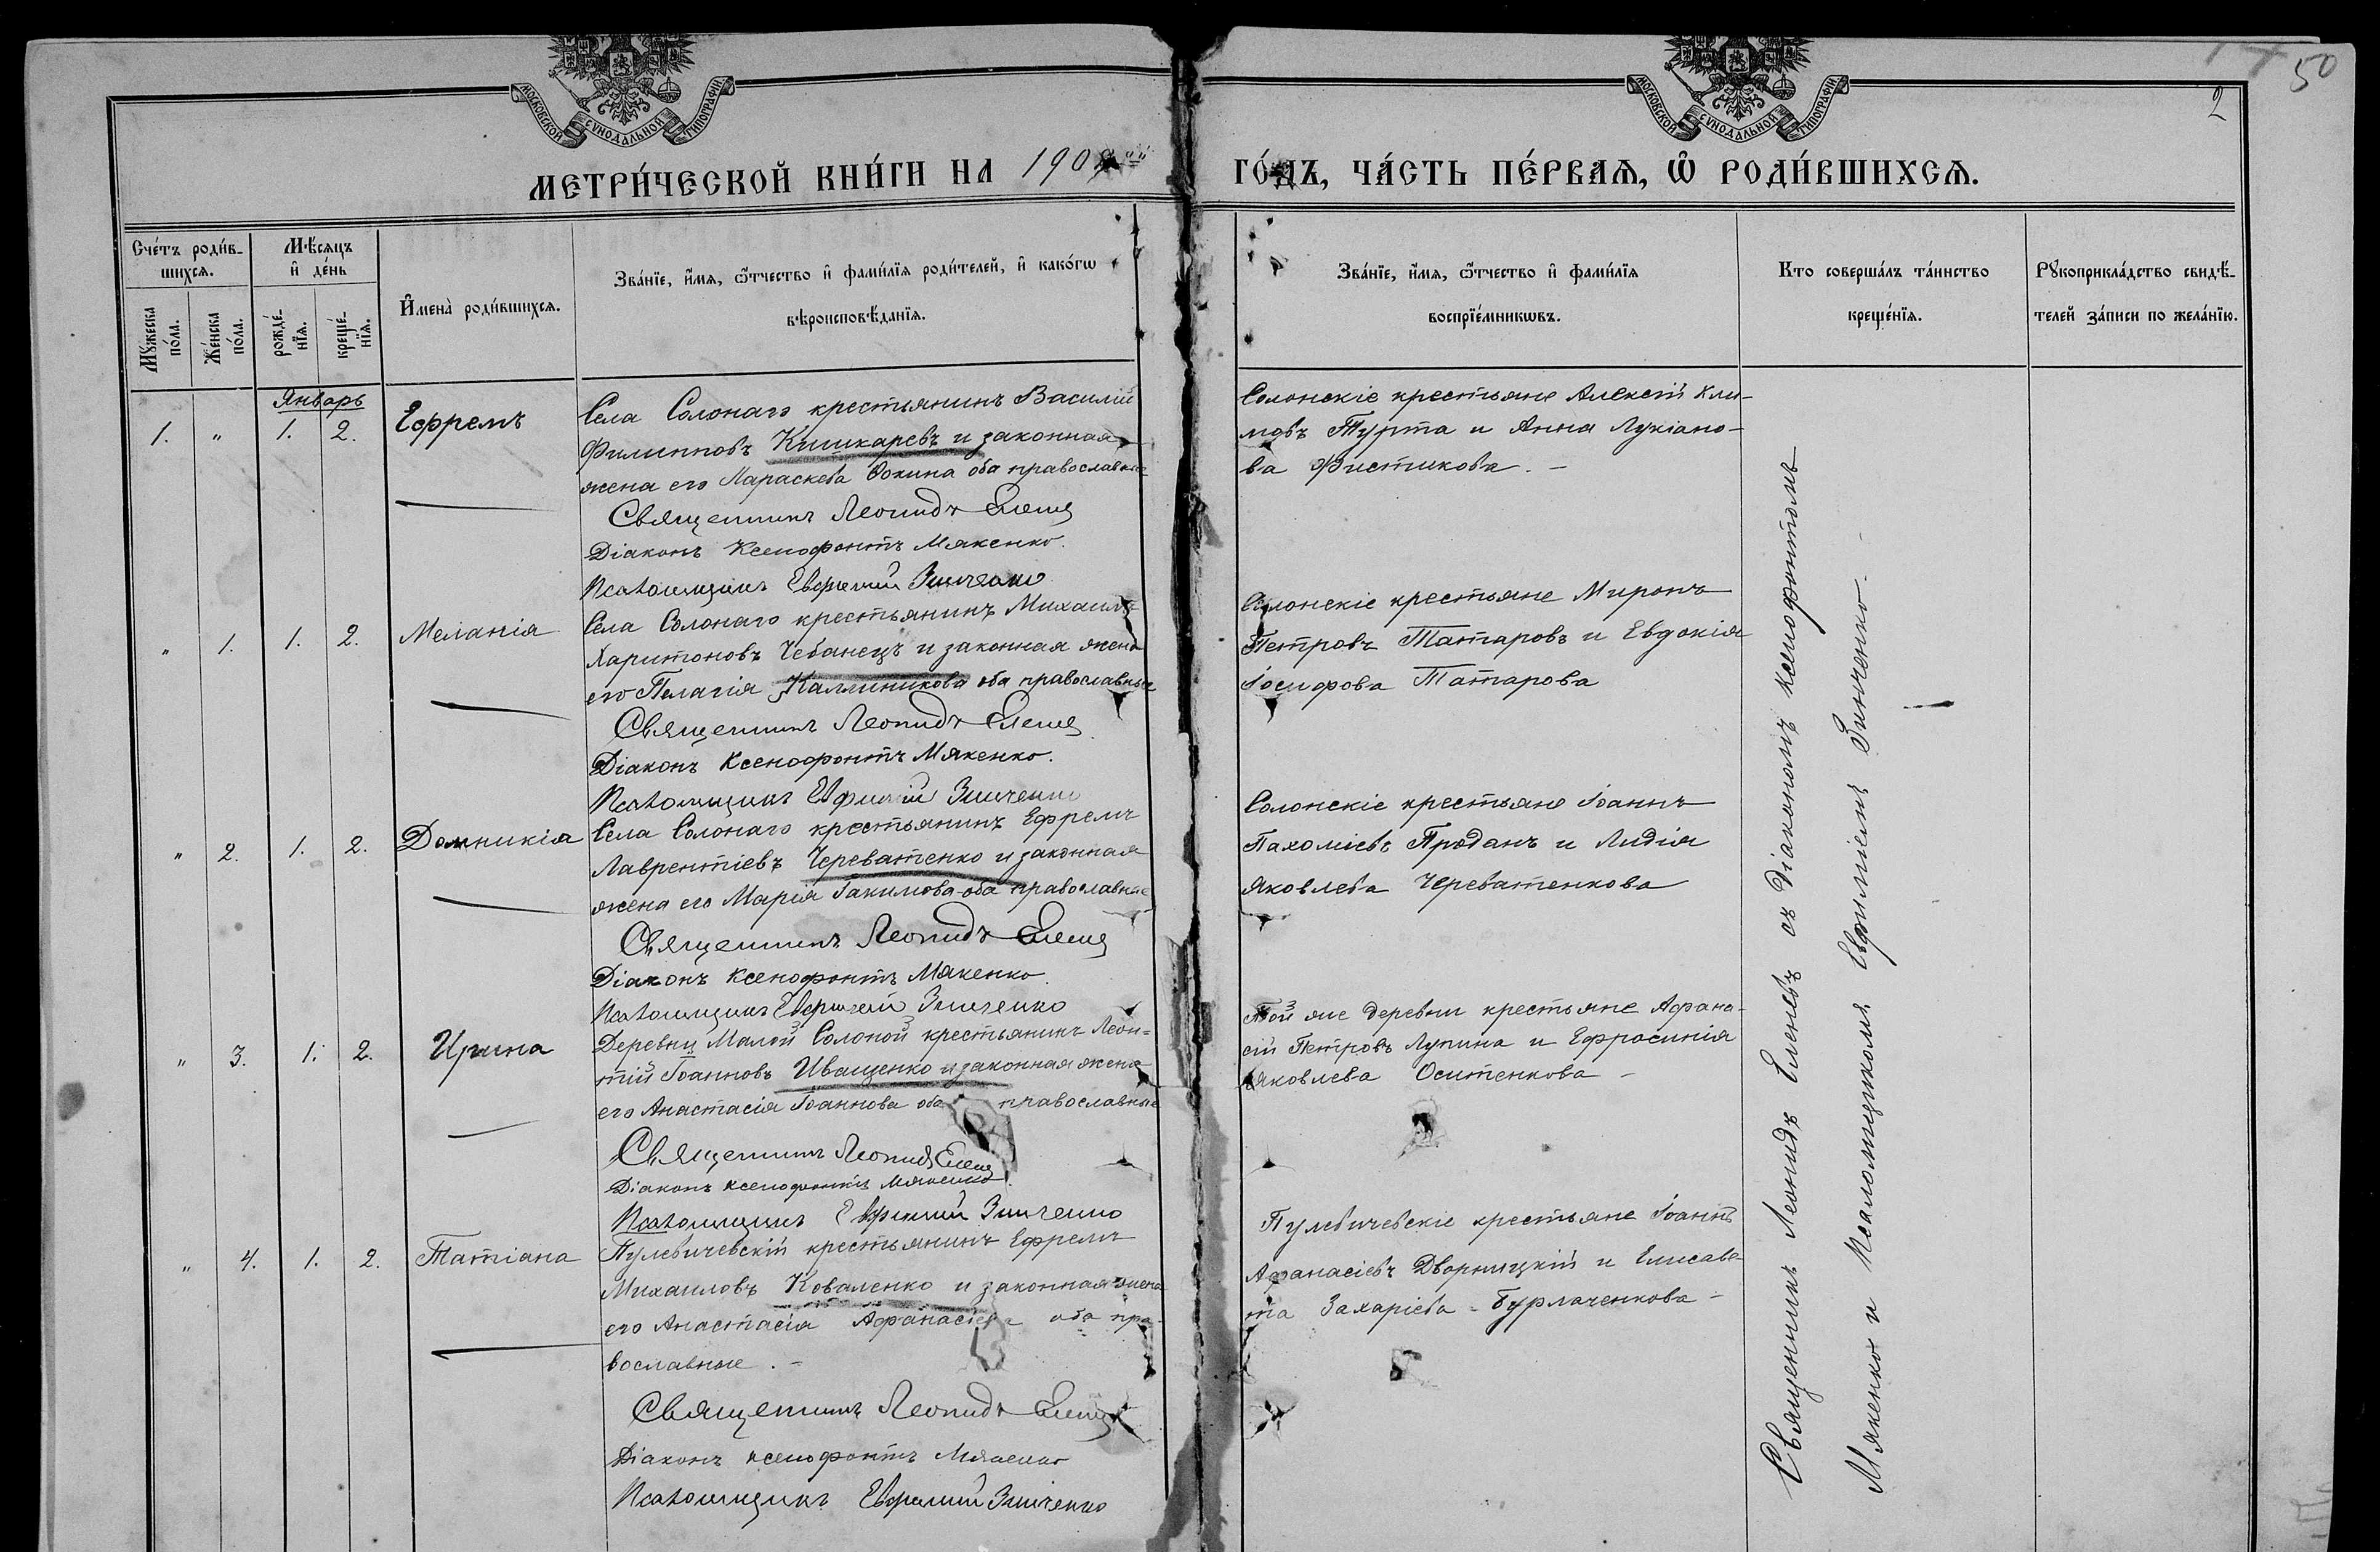 50
2
МОСКОВСКОЙ СѴНОДАЛЬНОЙ ТИПОГРАФІИ.
МОСКОВСКОЙ СѴНОДАЛЬНОЙ ТИПОГРАФІИ.
МЕТРИ́ЧЕСКОЙ КНИ́ГИ НА 190
ГО́ДЪ, ЧА́СТЬ ПЕ́РВАѦ, Ѡ҆ РОДИ́ВШИХСѦ.
Сче́тъ роди́в-
шихсѧ.
Мꙋ́жеска
по́ла.
Же́нска
по́ла.
Мѣ́сѧцъ
и҆ де́нь
рожде́-
нїѧ.
креще́-
нїѧ.
И҆мена̀ роди́вшихсѧ.
Зва́нїе, и҆́мѧ, ѻ҆́тчество и҆ фами́лїѧ роди́телей, и҆ како́гѡ
вѣроисповѣ́данїѧ.
Зва́нїе, и҆́мѧ, ѻ҆́тчество и҆ фами́лїѧ
воспрїе́мникѡвъ.
Кто соверша́лъ та́инство
креще́нїѧ.
Рꙋкоприкла́дство свидѣ́-
телей за́писи по жела́нїю.
Январь
1. " 1. 2.
Ефремъ
Села Солонаго крестьянинъ Василій
Филипповъ Кишкаревъ и законная
жена его Параскева Фокина оба православные
Священникъ Леонидъ Еленевъ
Діаконъ Ксенофонтъ Мякенко.
Псаломщикъ Евфимій Зинченко
Солонскіе крестьяне Алексій Кли-
мовъ Турта и Анна Лукіано-
ва Фистикова. –
" 1. 1. 2.
Меланія
Села Солонаго крестьянинъ Михаилъ
Харитоновъ Чебанецъ и законная жена
его Пелагія Каллиникова оба православные
Священникъ Леонидъ Еленевъ
Діаконъ Ксенофонтъ Мякенко.
Псаломщикъ Евфимій Зинченко
Солонскіе крестьяне Миронъ
Петровъ Татаровъ и Евдокія
Іосифова Татарова
" 2. 1. 2.
Домникія
Села Солонаго крестьянинъ Ефремъ
Лаврентіевъ Череватенко и законная
жена его Марія Іакимова оба православные
Священникъ Леонидъ Еленевъ
Діаконъ Ксенофонтъ Мякенко.
Псаломщикъ Евфимій Зинченко
Солонскіе крестьяне Іоаннъ
Пахоміевъ Проданъ и Лидія
Яковлева Череватенкова
" 3. 1. 2.
Ирина
Деревни Малой Солоной крестьянинъ Леон=
тій Іоанновъ Иващенко и законная жена
его Анастасія Іоаннова оба православные
Священникъ Леонидъ Еленевъ
Діаконъ Ксенофонтъ Мякенко.
Псаломщикъ Евфимій Зинченко
Той же деревни крестьяне Афана-
сій Петровъ Лупина и Ефросинія
Яковлева Оситенкова –
" 4. 1. 2.
Татіана
Пулевичевскій крестьянинъ Ефремъ
Михаиловъ Коваленко и законная жена
его Анастасія Афанасіева оба пра-
вославные. –
Священникъ Леонидъ Еленевъ
Діаконъ Ксенофонтъ Мякенко
Псаломщикъ Евфимій Зинченко
Пулевичевскіе крестьяне Іоаннъ
Афанасіевъ Дворницкій и Елисаве-
та Захаріева - Бурлаченкова –
Священникъ Леонидъ Еленевъ съ Діакономъ Ксенофонтомъ
Мякенко и Псаломщикомъ Евфиміемъ Зинченко.